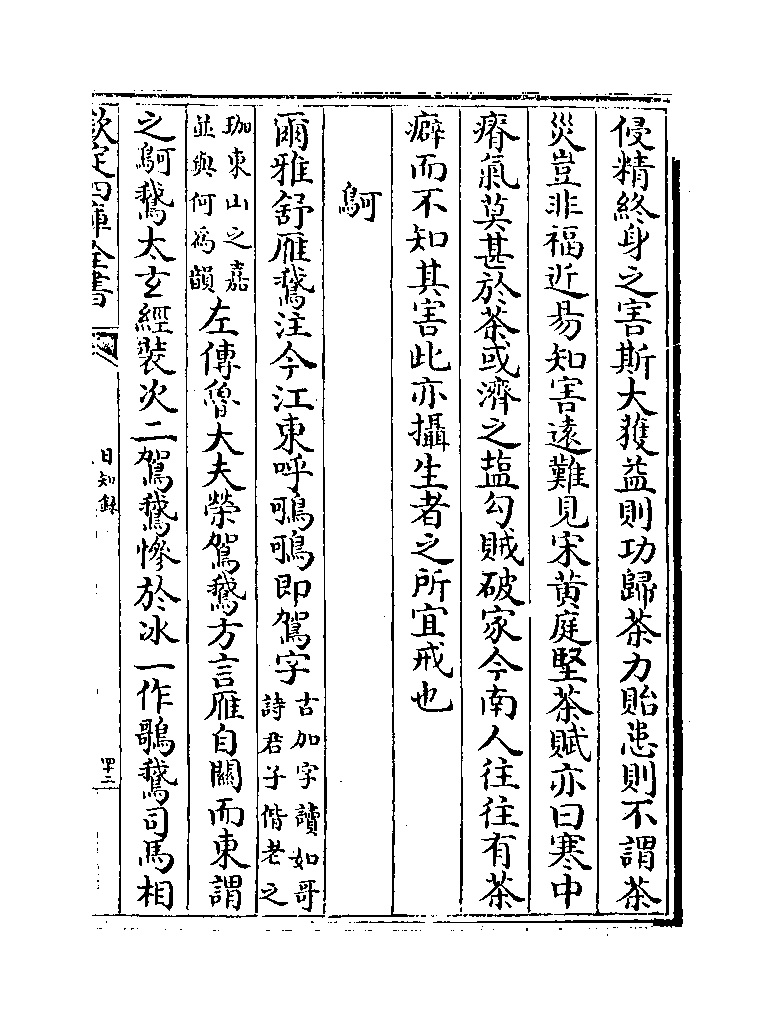 侵精終身之害斯大獲益則功歸茶力貽患則不謂茶
災豈非福近易知害遠難見宋黄庭堅茶賦亦曰寒中
瘠氣莫甚於茶或濟之盐勾賊破家今南人往往有茶
癖而不知其害此亦攝生者之所宜戒也
鴚
爾雅舒雁鵞注今江東呼鳴鳴即鴐字古加字讀如哥詩君子偕老之
珈東山之嘉並與何為韻左傳魯大夫榮鴐鵞方言雁自關而東謂
之鴚鵞太玄經裝次二鴐鵞慘於冰一作鴚鵞司馬相
欽定四庫全書
日知録
四十三